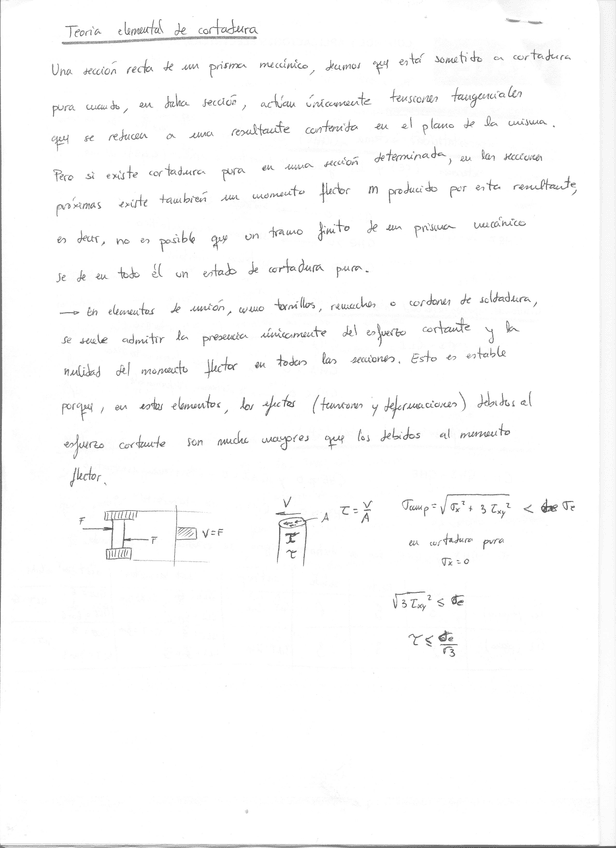 Teoría elemental de cortadura
Una sección recta de un prisma mecánico, decimos que está sometido a cortadura
pura cuando, en dicha sección, actúan únicamente tensiones tangenciales
que se reducen a una resultante contenida en el plano de la misma.
Pero si existe cortadura pura en una sección determinada, en las secciones
próximas existe también un momento flector m producido por esta resultante,
es decir, no es posible que un tramo finito de un prisma mecánico
se de en todo él un estado de cortadura pura.
→ En elementos de unión, como tornillos, remaches o cordones de soldadura,
se suele admitir la presencia únicamente del esfuerzo cortante y la
nulidad del momento flector en todas las secciones. Esto es estable
porque, en estos elementos, los efectos (tensiones y deformaciones) debidos al
esfuerzo cortante son mucho mayores que los debidos al momento
flector.
F
F
V=F
V
A
τ
τ = V/A
σcomp = √σx² + 3 τxy² < σe
en cortadura pura
σx = 0
√3 τxy² ≤ σe
τ ≤ σe/√3